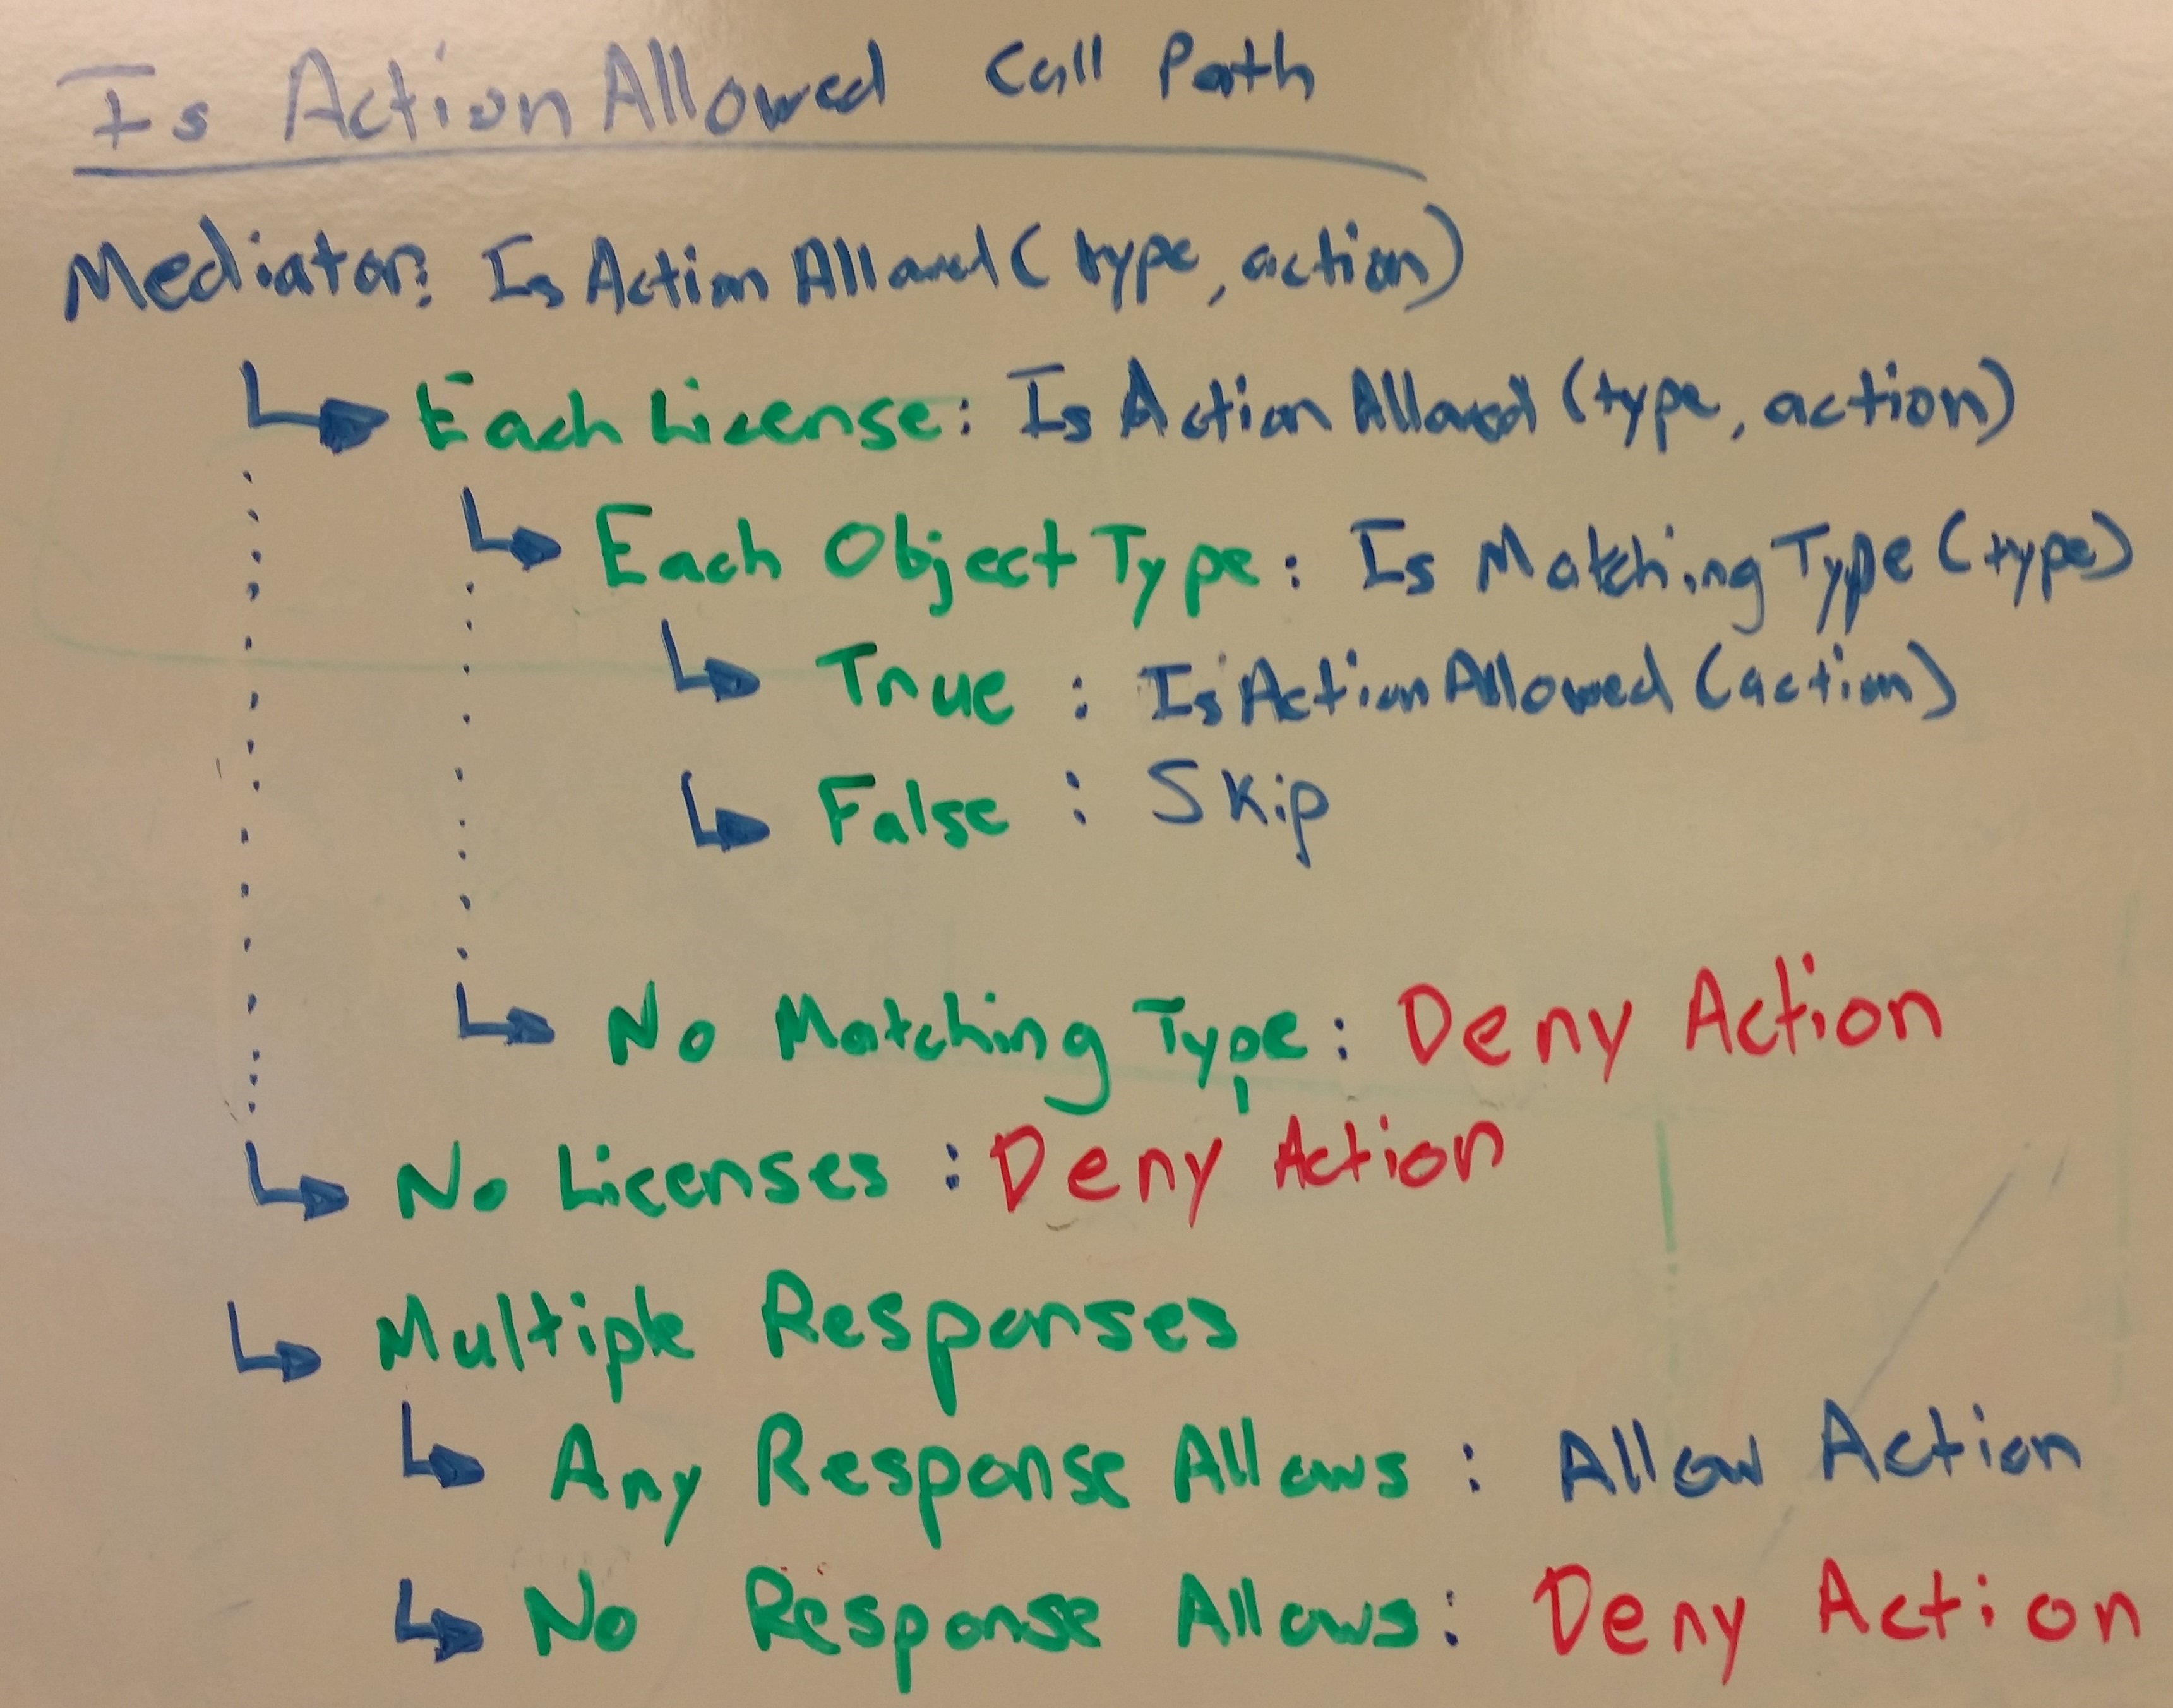 Is Action Allowed Call Path
Mediator: Is Action Allowed (type, action)
Each License: Is Action Allowed (type, action)
Each Object Type: Is Matching Type (type)
True : Is Action Allowed (action)
False : Skip
No Matching Type: Deny Action
No Licenses : Deny Action
Multiple Responses
Any Response Allows : Allow Action
No Response Allows: Deny Action